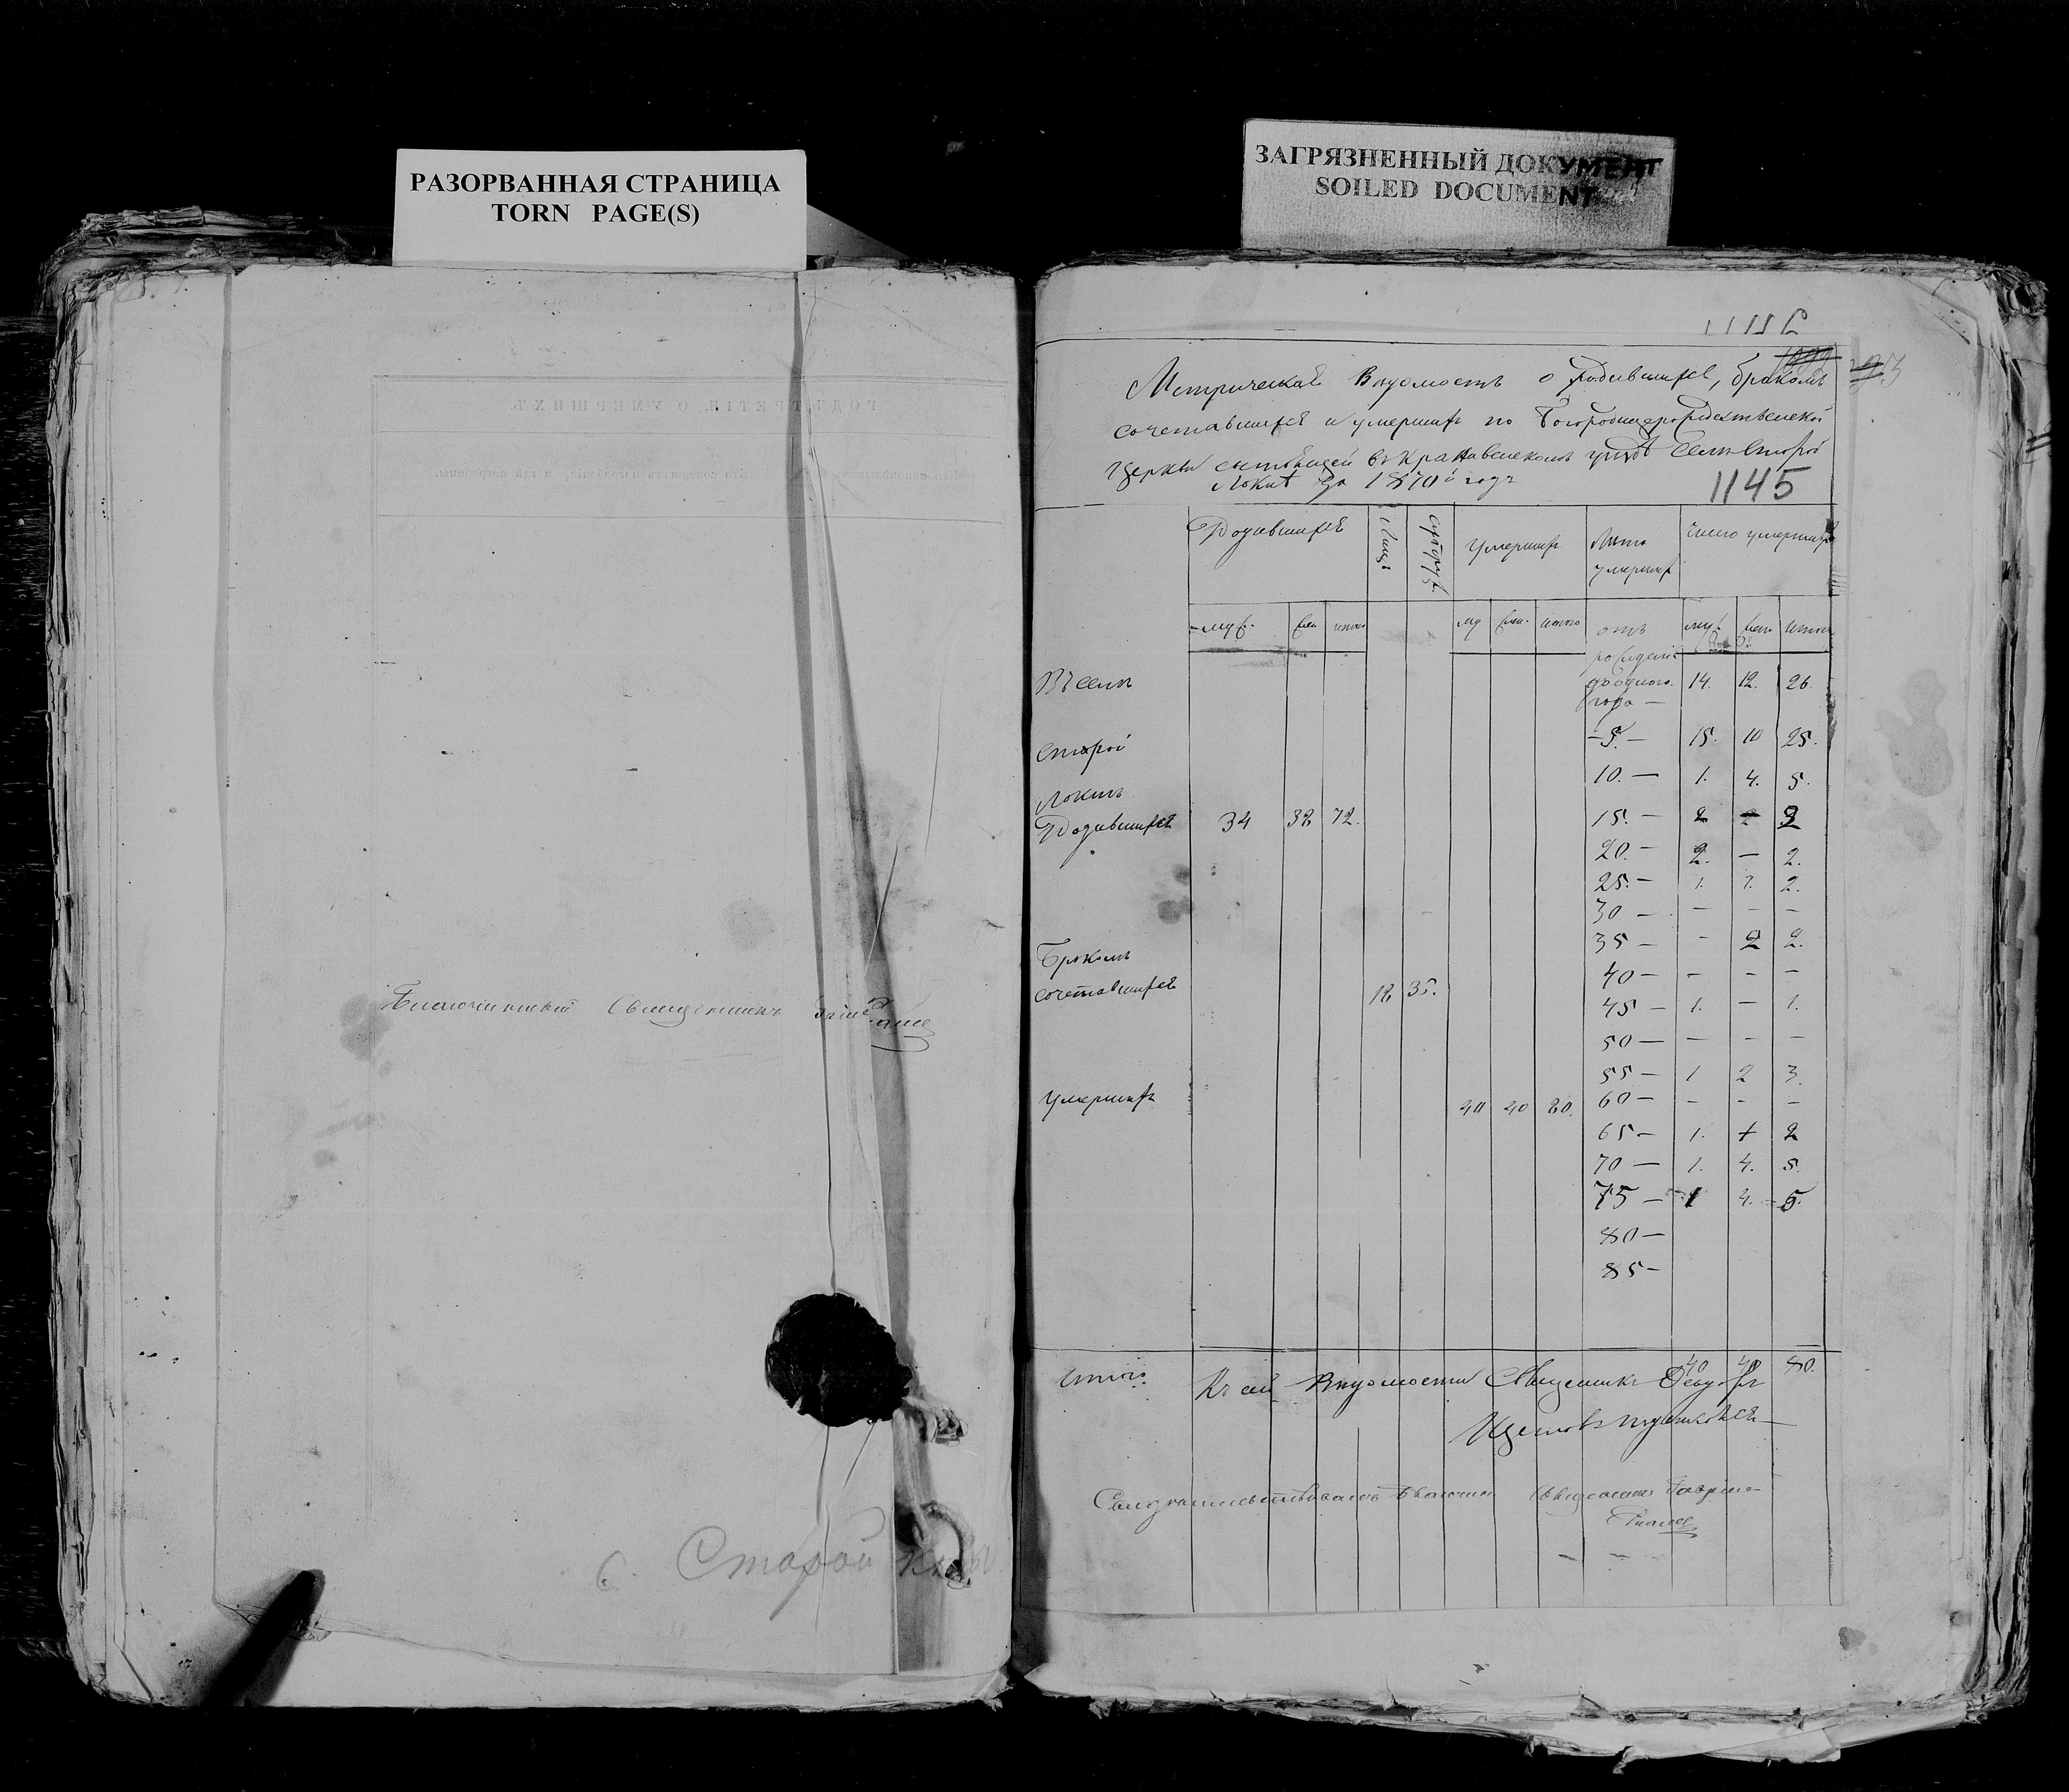 РАЗОРВАННАЯ СТРАНИЦА
TORN PAGE(S)
ЗАГРЯЗНЕННЫЙ ДОКУМЕНТ
SOILED DOCUMENT
Благочинный Священникъ
с. Старой
Метрическая Вѣдомость о родившихся, бракомъ
сочетавшихся и умершихъ по Богородицерождественской
Церкви состоящей въ уѣздѣ Селѣ Старой
за 1870й годъ
1145
Родившихся Лицъ Супруж. Умершихъ Лѣта умершихъ Число умершихъ
муж. жен. итого му жен. итого отъ муж. жен. итого
Въ Селѣ рожденія до одного года — 14. 12. 26.
Старой —5.— 15. 10 25.
10.— 1. 4. 5.
Родившихся 34 38 72. 15.— 2 — 2
20.— 2. — 2.
25.— 1. 1. 2.
30 — — — —
Бракомъ 35 — - 2 2.
40 — — — —
сочетавшихся 18 36. 45 — 1. — 1.
50 — — — —
55 — 1 2 3.
Умершихъ 40 40 80. 60 — — — —
65 — 1. 1 2
70 — 1. 4. 5.
75 — 1 4. 5.
80 —
85 —
Итого: 40 40 80.
Къ сей Вѣдомости Священникъ Ѳеодоръ
Свидѣтельствовалъ Благочин. Священникъ